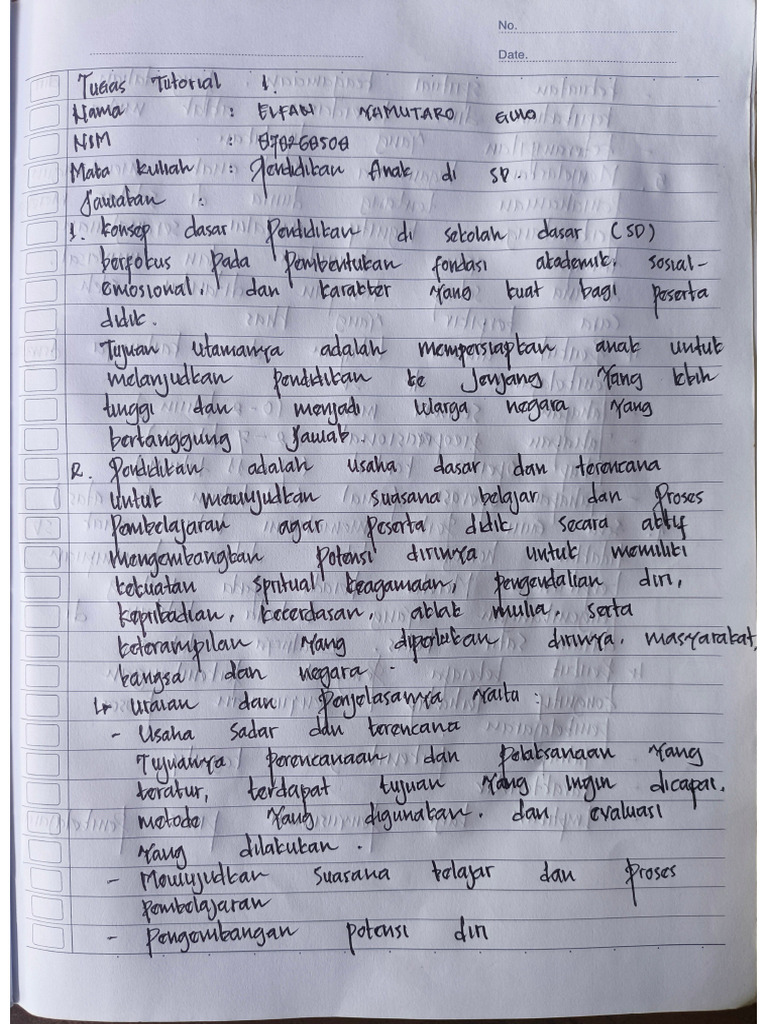 No.
Date.
Tugas Tutorial 1.
Nama : ELFAN NAMUTARO GULO
NIM : 878268508
Mata kuliah : Pendidikan Anak di SD.
Jawaban :
1. Konsep dasar Pendidikan di sekolah dasar (SD)
berfokus pada pembentukan fondasi akademik, sosial-
emosional, dan karakter yang kuat bagi peserta
didik.
Tujuan utamanya adalah mempersiapkan anak untuk
melanjudkan pendidikan ke jenjang yang lebih
tinggi dan menjadi warga negara yang
bertanggung jawab.
2. Pendidikan adalah usaha dasar dan terencana
untuk mewujudkan suasana belajar dan proses
pembelajaran agar peserta didik secara aktif
mengembangkan potensi dirinya untuk memiliki
kekuatan spritual keagamaan, pengendalian diri,
kepribadian, kecerdasan, aklak mulia, serta
keterampilan yang diperlukan dirinya, masyarakat,
bangsa dan negara.
↳ uraian dan penjelasannya yaitu :
- Usaha Sadar dan terencana
Tujuannya perencanaan dan pelaksanaan yang
teratur, terdapat tujuan yang ingin dicapai,
metode yang digunakan, dan evaluasi
yang dilakukan.
- Mewujudkan suasana belajar dan proses
pembelajaran
- Pengembangan potensi diri